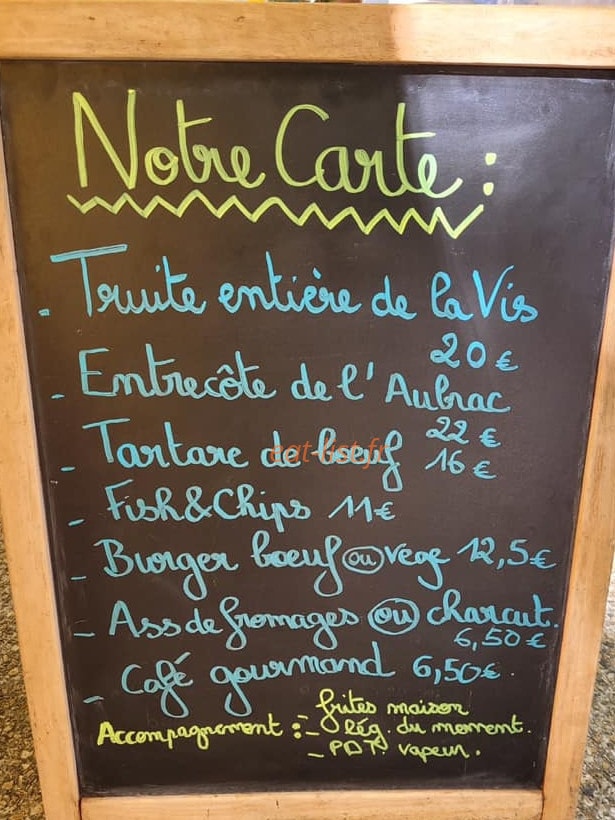 Notre Carte :
- Truite entière de la Vis
20 €
- Entrecôte de l'Aubrac
22 €
- Tartare de boeuf 16 €
eat-list.fr
- Fish & Chips 11€
- Burger boeuf ou vege 12,5€
- Ass de fromages ou charcut.
6,50 €
- Café gourmand 6,50€.
Accompagnement : - frites maison
- lég. du moment.
- PDT. vapeur.